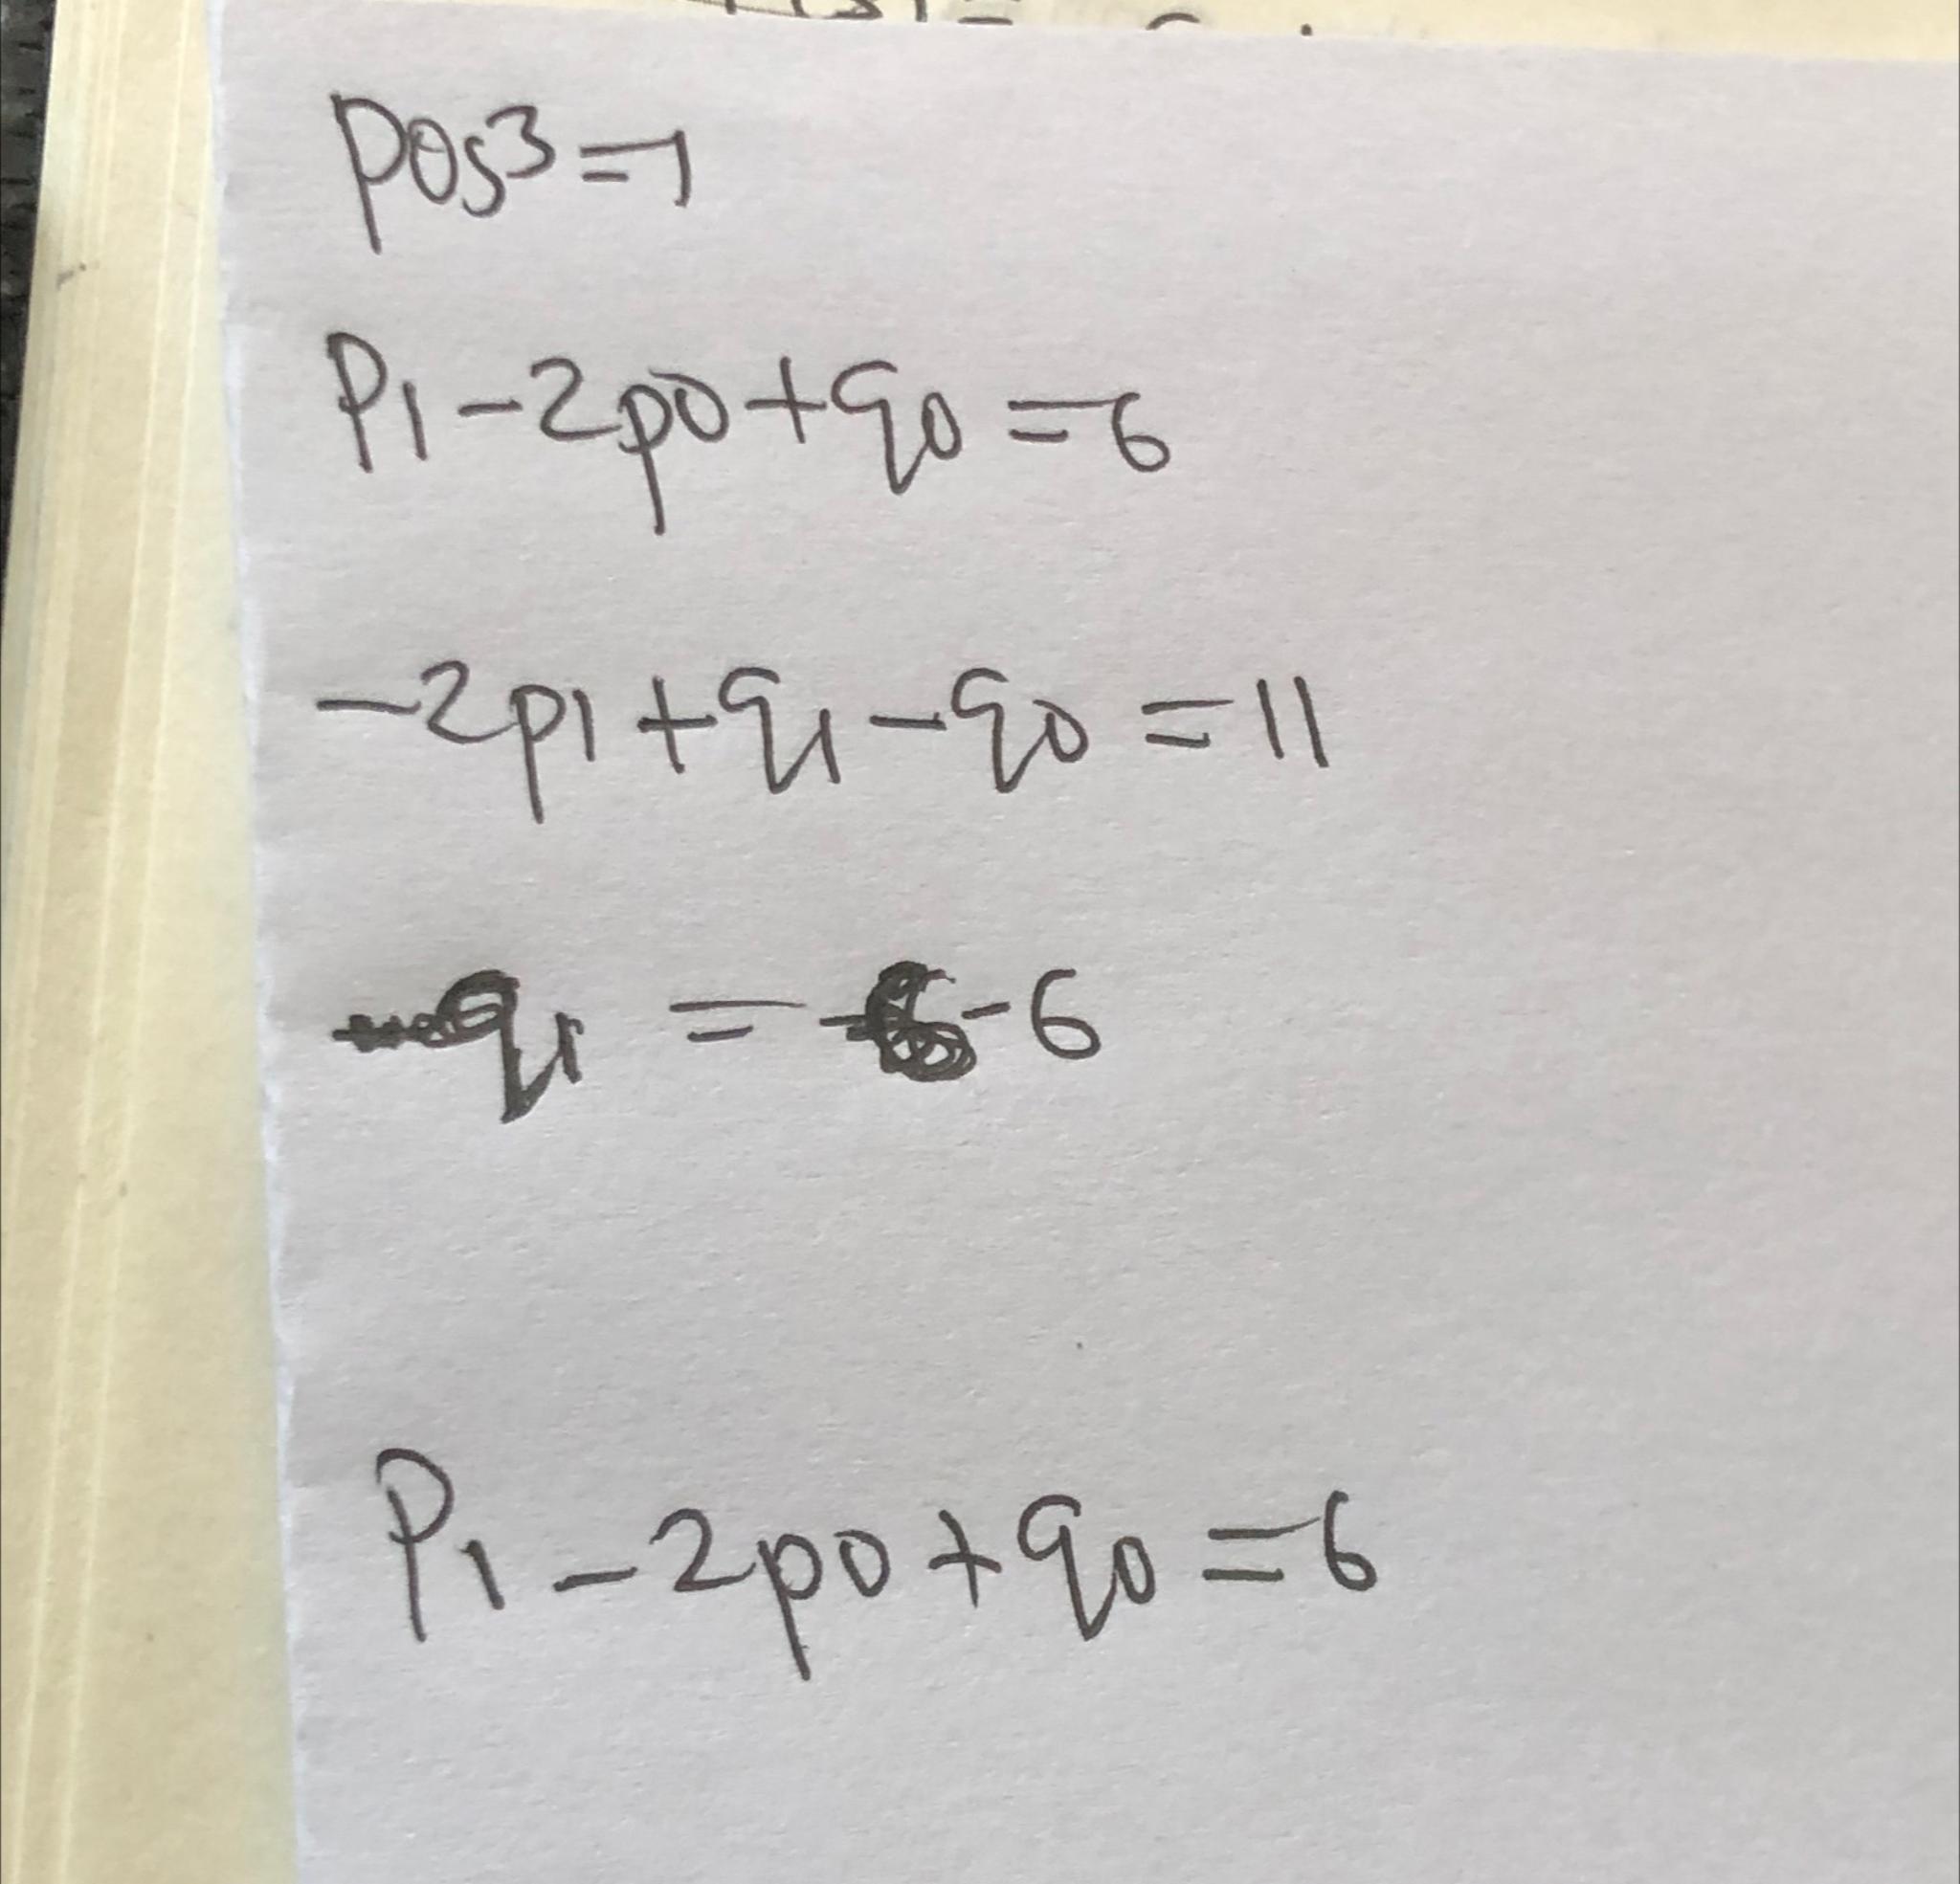 p0s³=1
P1-2p0+q0=6
-2p1+q1-q0=11
q1=-6
P1-2p0+q0=6